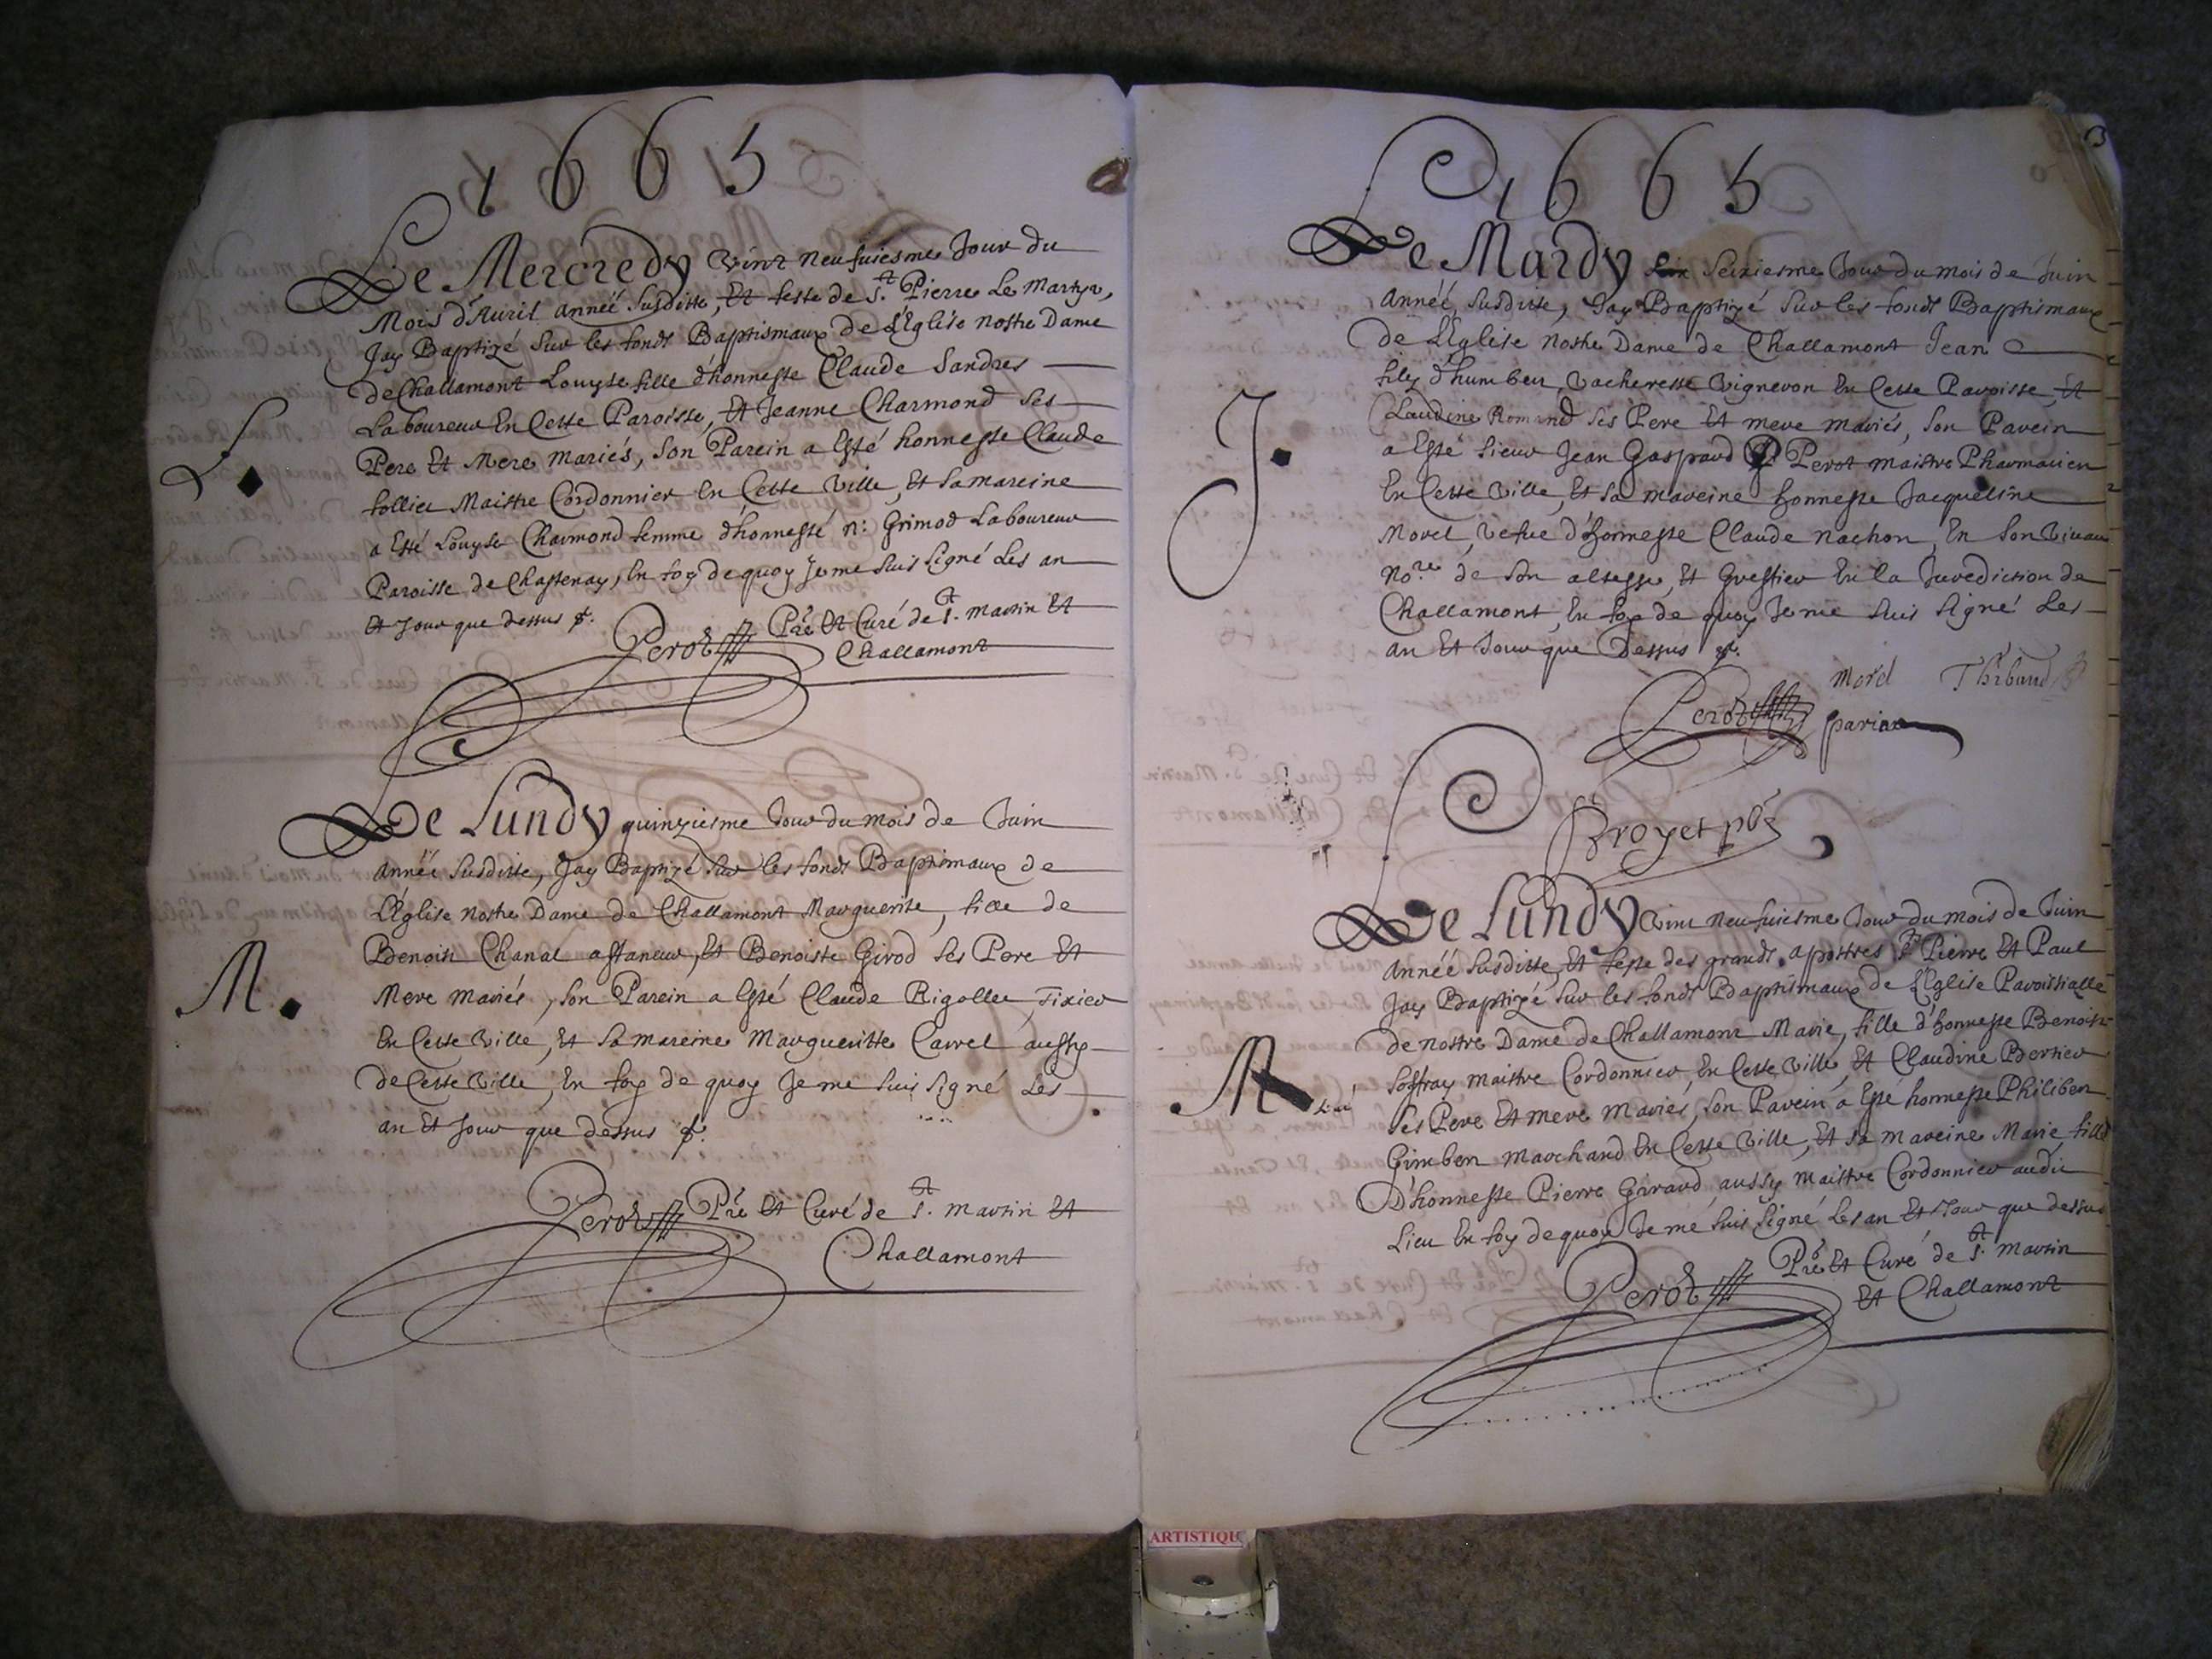 1665
Le Mercredy vint neufuiesme Jour du
Mois d'Auril année susditte, Et feste de St. Pierre Le Martyr,
Jay Baptizé sur les fonds Baptismaux de L'Eglise nostre Dame
de Challamont Louyse fille d'honneste Claude Sandres
Laboureur En Cette Paroisse, Et Jeanne Charmond ses
Pere Et Mere mariés, son Parein a Esté honneste Claude
follier Maistre Cordonnier En Cette ville, Et sa mareine
a Esté Louyse Charmond femme d'honneste n: Grimod Laboureur
Paroisse de Chastenay, En foy de quoy Je me suis signé Les an
Et Jour que dessus &.
Perot Pre Et Curé de St. Martin Et
Challamont
L.
Le Lundy quinziesme Jour du mois de Juin
année susditte, Jay Baptizé sur les fonds Baptismaux de
L'Eglise nostre Dame de Challamont Marguerite, fille de
Benoist Chanal Et Benoiste Girod ses Pere Et
Mere mariés, son Parein a Esté Claude Rigollet Tixier
En Cette ville, Et sa mareine Margueritte Carrel aussy
de Cette ville, En foy de quoy Je me suis signé Les
an Et Jour que dessus &.
M.
Perot Pre Et Curé de St. Martin Et
Challamont
1665
Le Mardy seiziesme Jour du mois de Juin
année susditte, Jay Baptizé sur les fonds Baptismaux
de L'Eglise nostre Dame de Challamont Jean
filz d'humber Vacheresse vigneron En Cette Paroisse, Et
Claudine Romand ses Pere Et mere mariés, son Parein
a Esté sieur Jean Gaspard Perot maistre Pharmacien
En Cette ville, Et sa mareine honneste Jacqueline
Morel, vefue d'honneste Claude nachon, En son viuant
Nore de son altesse, Et Greffier En la Juridiction de
Challamont, En foy de quoy Je me suis signé Les
an Et Jour que Dessus &.
J.
Morel Thibaud
Perot parian
Broyet pbr
Le Lundy vint neufuiesme Jour du mois de Juin
année susditte, Et feste des grands apostres St Pierre Et Paul
Jay Baptizé sur les fonds Baptismaux de L'Eglise Paroissialle
de nostre Dame de Challamont Marie, fille d'honneste Benoist
Soffray maistre Cordonnier En Cette ville Et Claudine Bertier
ses Pere Et mere mariés, son Parein a Esté honneste Philibert
Gimber marchand En Cette ville, Et sa mareine Marie fille
D'honneste Pierre Girard aussy maistre Cordonnier audit
Lieu En foy de quoy Je me suis signé Les an Et Jour que dessus
M
Perot Pre Et Curé de St. Martin
Et Challamont
ARTISTIQU